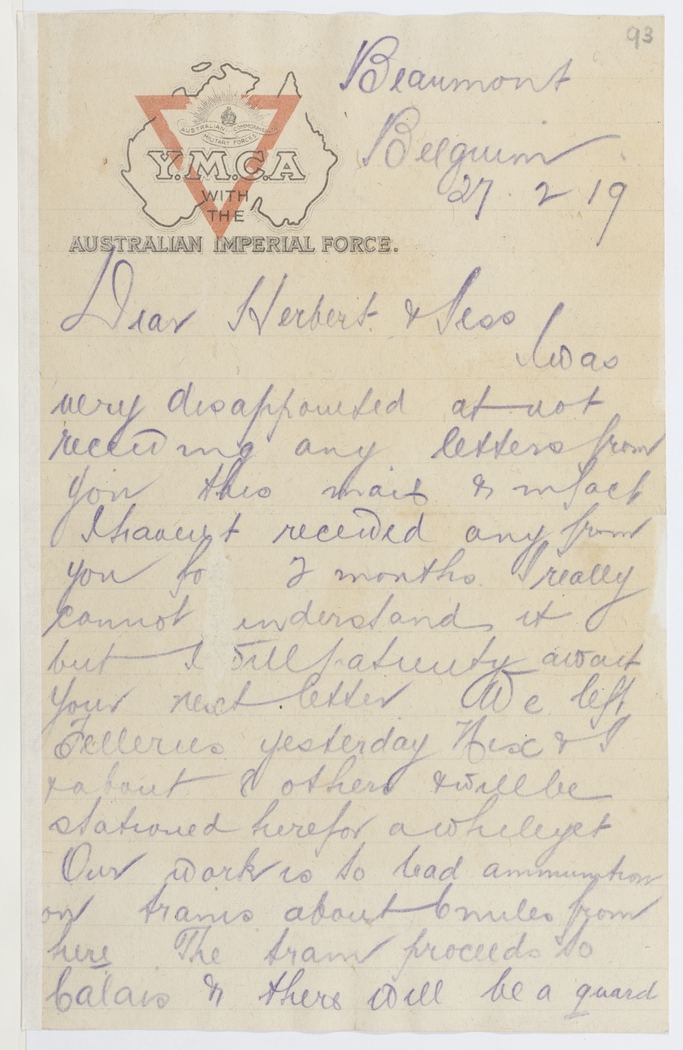 93
Beaumont
Belguim
27. 2 19
AUSTRALIAN COMMONWEALTH
MILITARY FORCES
Y.M.C.A
WITH
THE
AUSTRALIAN IMPERIAL FORCE.
Dear Herbert & Jess
I was
very disappointed at not
receiving any letters from
you this mail & infact
I havent received any from
you fo 2 months. I really
cannot understand it
but I still patiently await
your next letter We left
Felleries yesterday Hix & I
& about others & will be
stationed here for a while yet
Our work is to load ammunition
on trains about 6 miles from
here The train proceeds to
Calais & there will be a guard